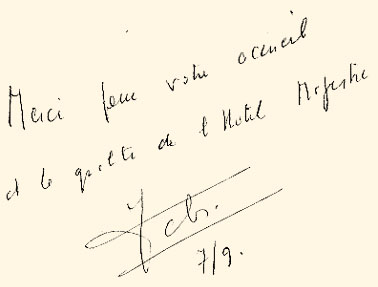 Merci pour votre accueil
et la qualité de l'Hotel Majestic
7/9.